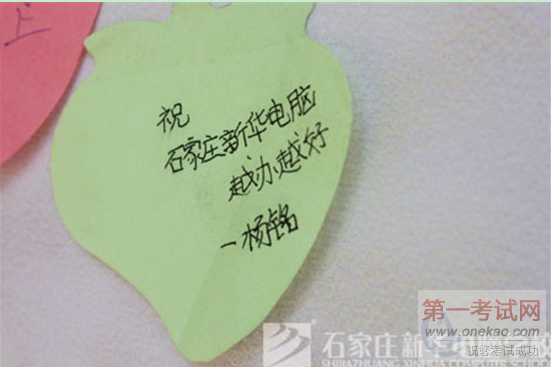 上
祝
石家庄新华电脑
越办越好
一杨铭
第一考试网
www.onekao.com
祝您考试成功
石家庄新华电脑学校
SHIJIAZHUANG XINHUA COMPUTER SCHOOL